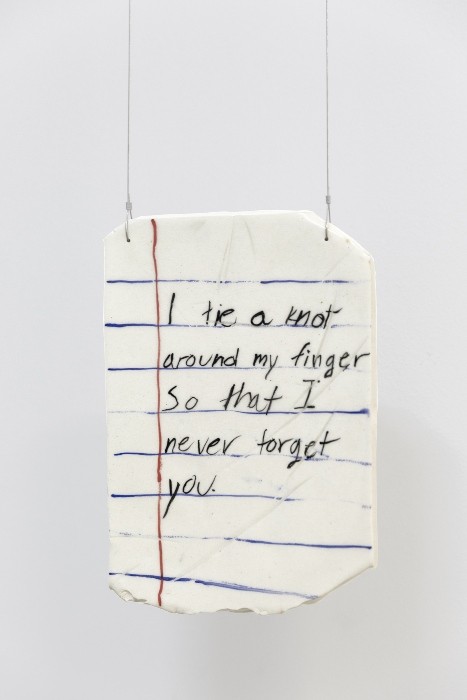 I tie a knot
around my finger
So that I
never forget
you.